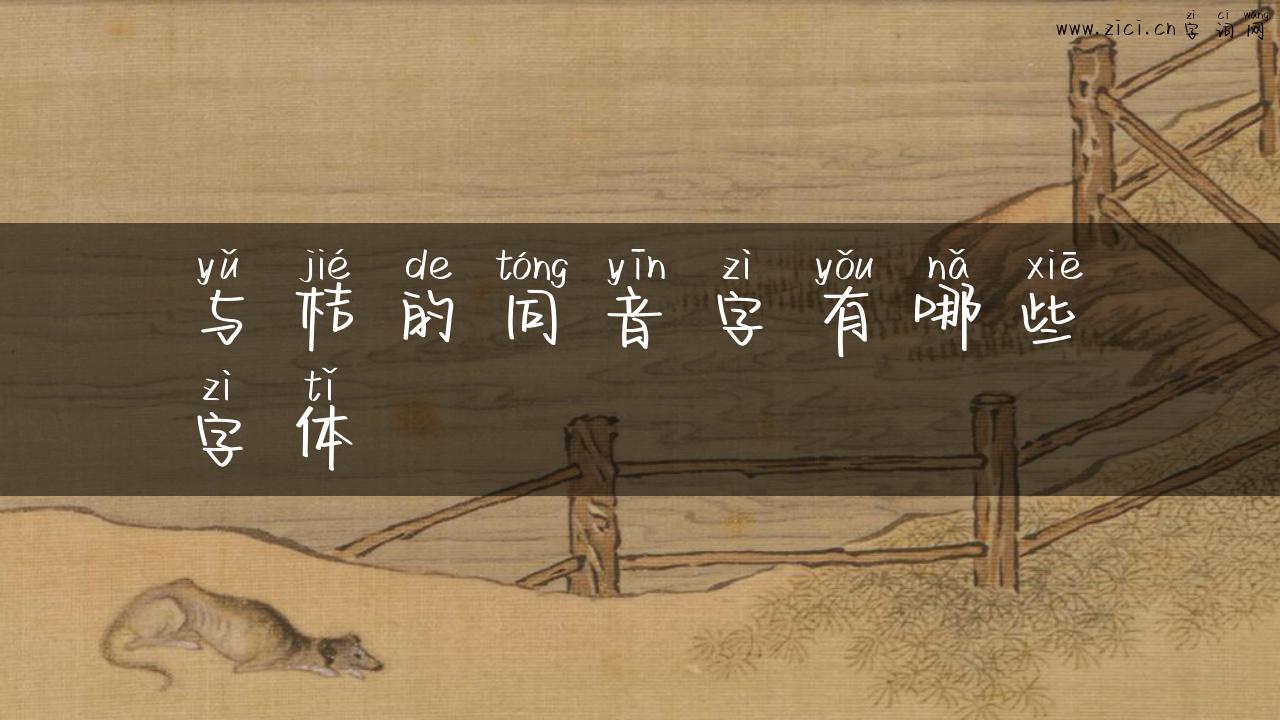 zì cì wǎng
www.zici.cn 字词网
yǔ jié de tóng yīn zì yǒu nǎ xiē
与桔的同音字有哪些
zì tǐ
字体